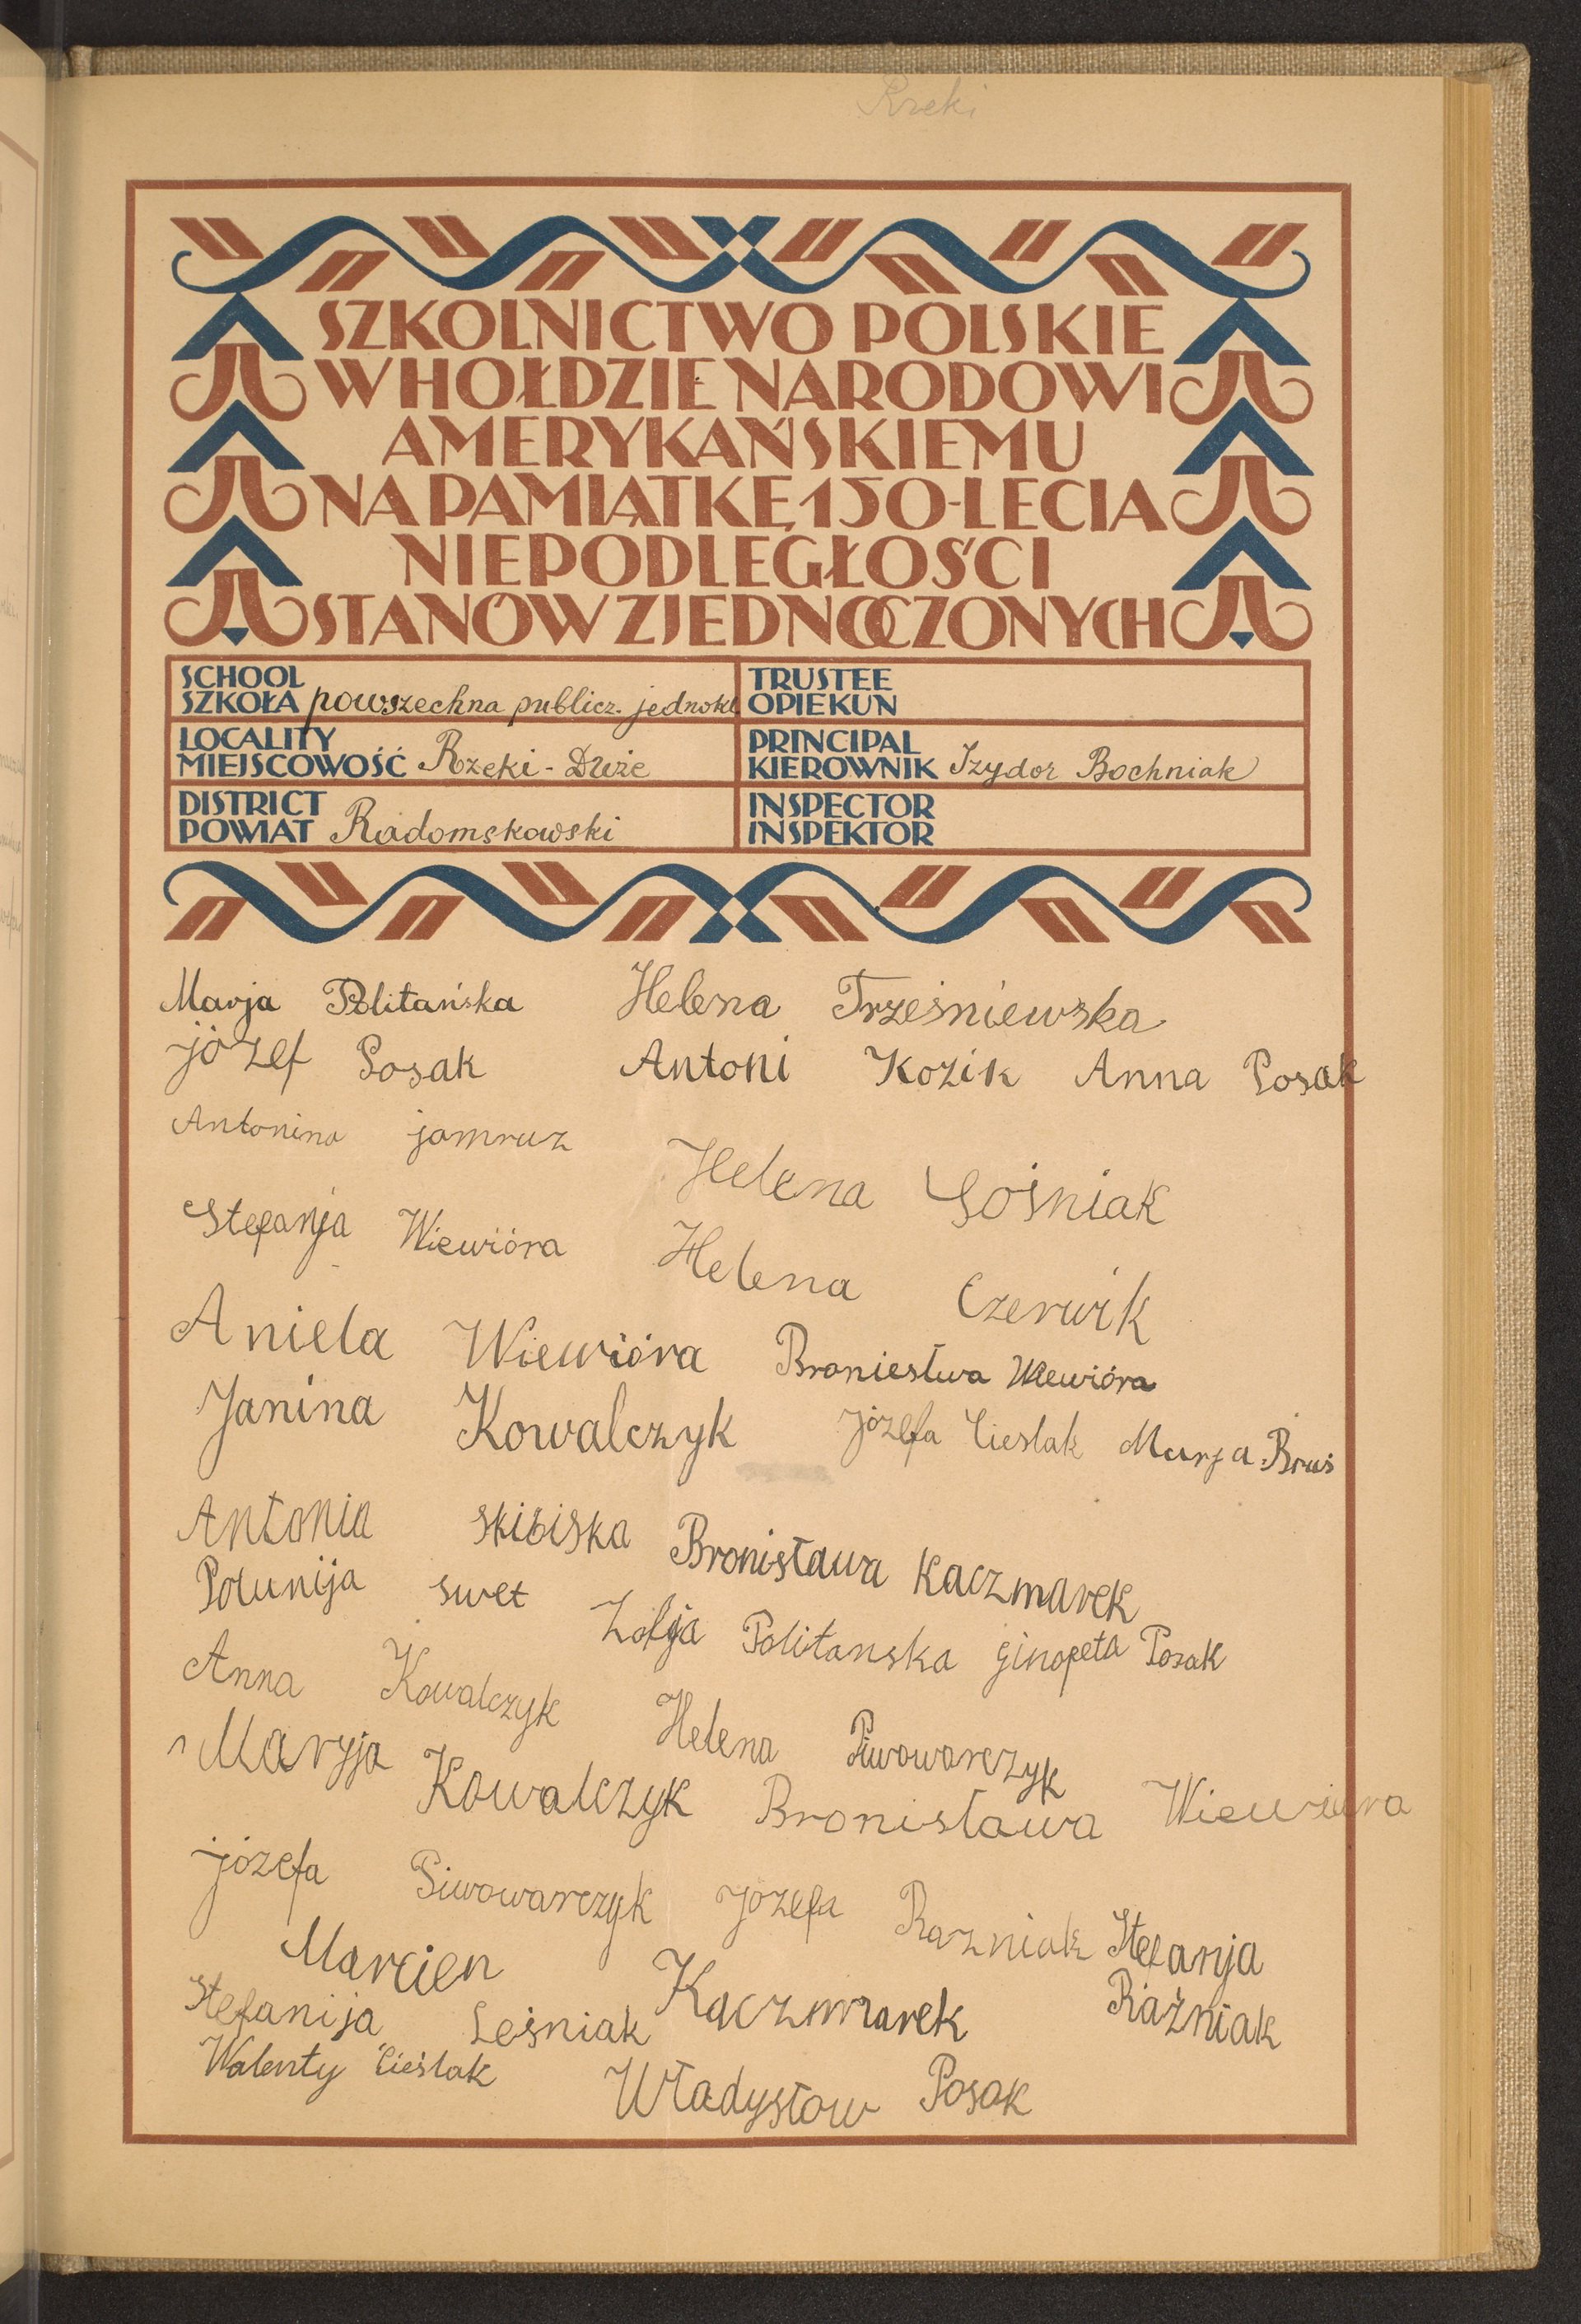 Rzeki
SZKOLNICTWO POLSKIE
W HOŁDZIE NARODOWI
AMERYKAŃSKIEMU
NA PAMIĄTKĘ 150-LECIA
NIEPODLEGŁOŚCI
STANÓW ZJEDNOCZONYCH
SCHOOL
SZKOŁA powszechna publicz. jednokl
TRUSTEE
OPIEKUN
LOCALITY
MIEJSCOWOŚĆ Rzeki - Duże
PRINCIPAL
KIEROWNIK Izydor Bochniak
DISTRICT
POWIAT Radomskowski
INSPECTOR
INSPEKTOR
Marja Politańska Helena Trześniewska
józef Posak Antoni Kozik Anna Posak
Antonina jamruz
Helena Lośniak
Stefanja Wiewióra Helena Czerwik
Aniela Wiewióra Broniesława Wiewióra
Janina Kowalczyk Józefa Cieslak Marja Bruś
Antonia skibiska Bronisława Kaczmarek
swet Zofja Politanska Posak
Anna Kowalczyk Helena Piwowarczyk
Maryja Kowalczyk Bronisława Wiewiura
józefa Piwowarczyk Józefa Razniak Stefanja
Marcien Kaczmarek Raźniak
Stefanija Leśniak
Walenty Cieślak Władysław Posak